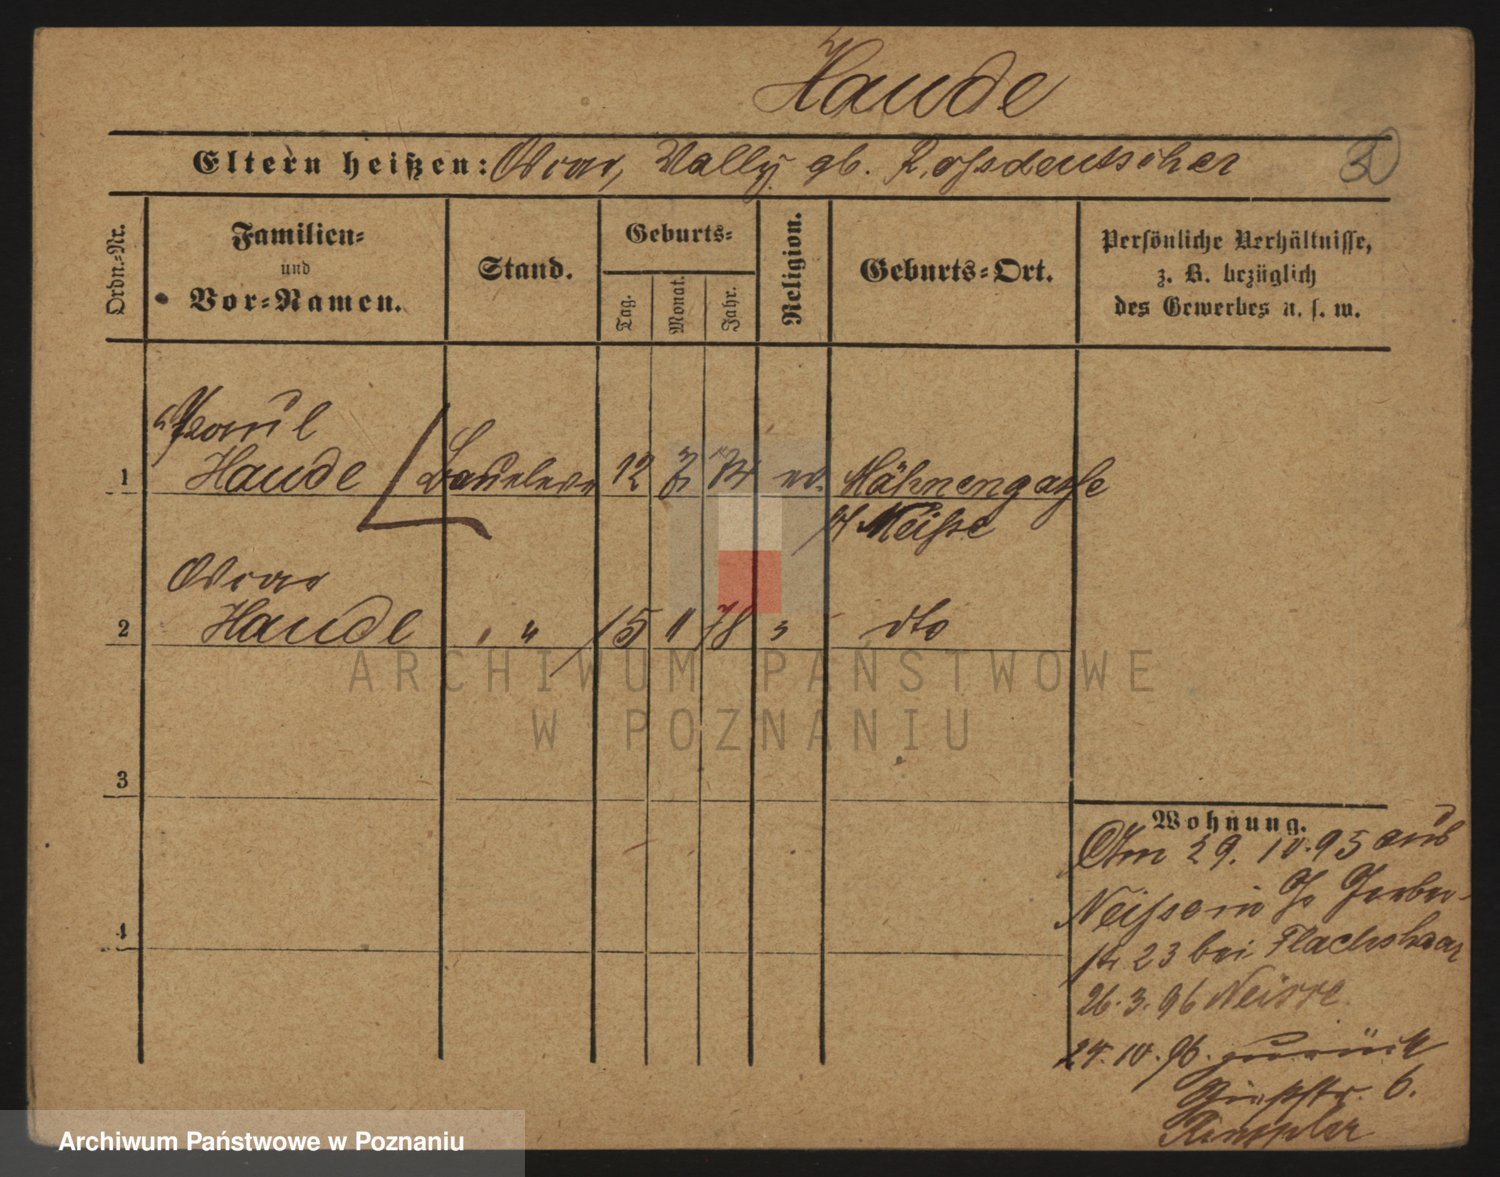 Haude
Eltern heißen: Oscar, Wally gb. Roßdeutscher
3
Ordn.-Nr.
Familien-
und
Vor-Namen.
Stand.
Geburts-
Tag.
Monat.
Jahr.
Religion.
Geburts-Ort.
Persönliche Verhältnisse,
z. B. bezüglich
des Gewerbes u. s. w.
Paul
1 Haude 12 ev. Mähnengasse
Neisse
Oscar
2 Haude " " 15 11 78 " dto
3
4
Wohnung.
Am 29. 10. 95 aus
Neisse in Gerber-
str 23 bei Flachshaar
26. 3. 96 Neisse
24. 10. 96. zurück
6.
ARCHIWUM PAŃSTWOWE
W POZNANIU
Archiwum Państwowe w Poznaniu